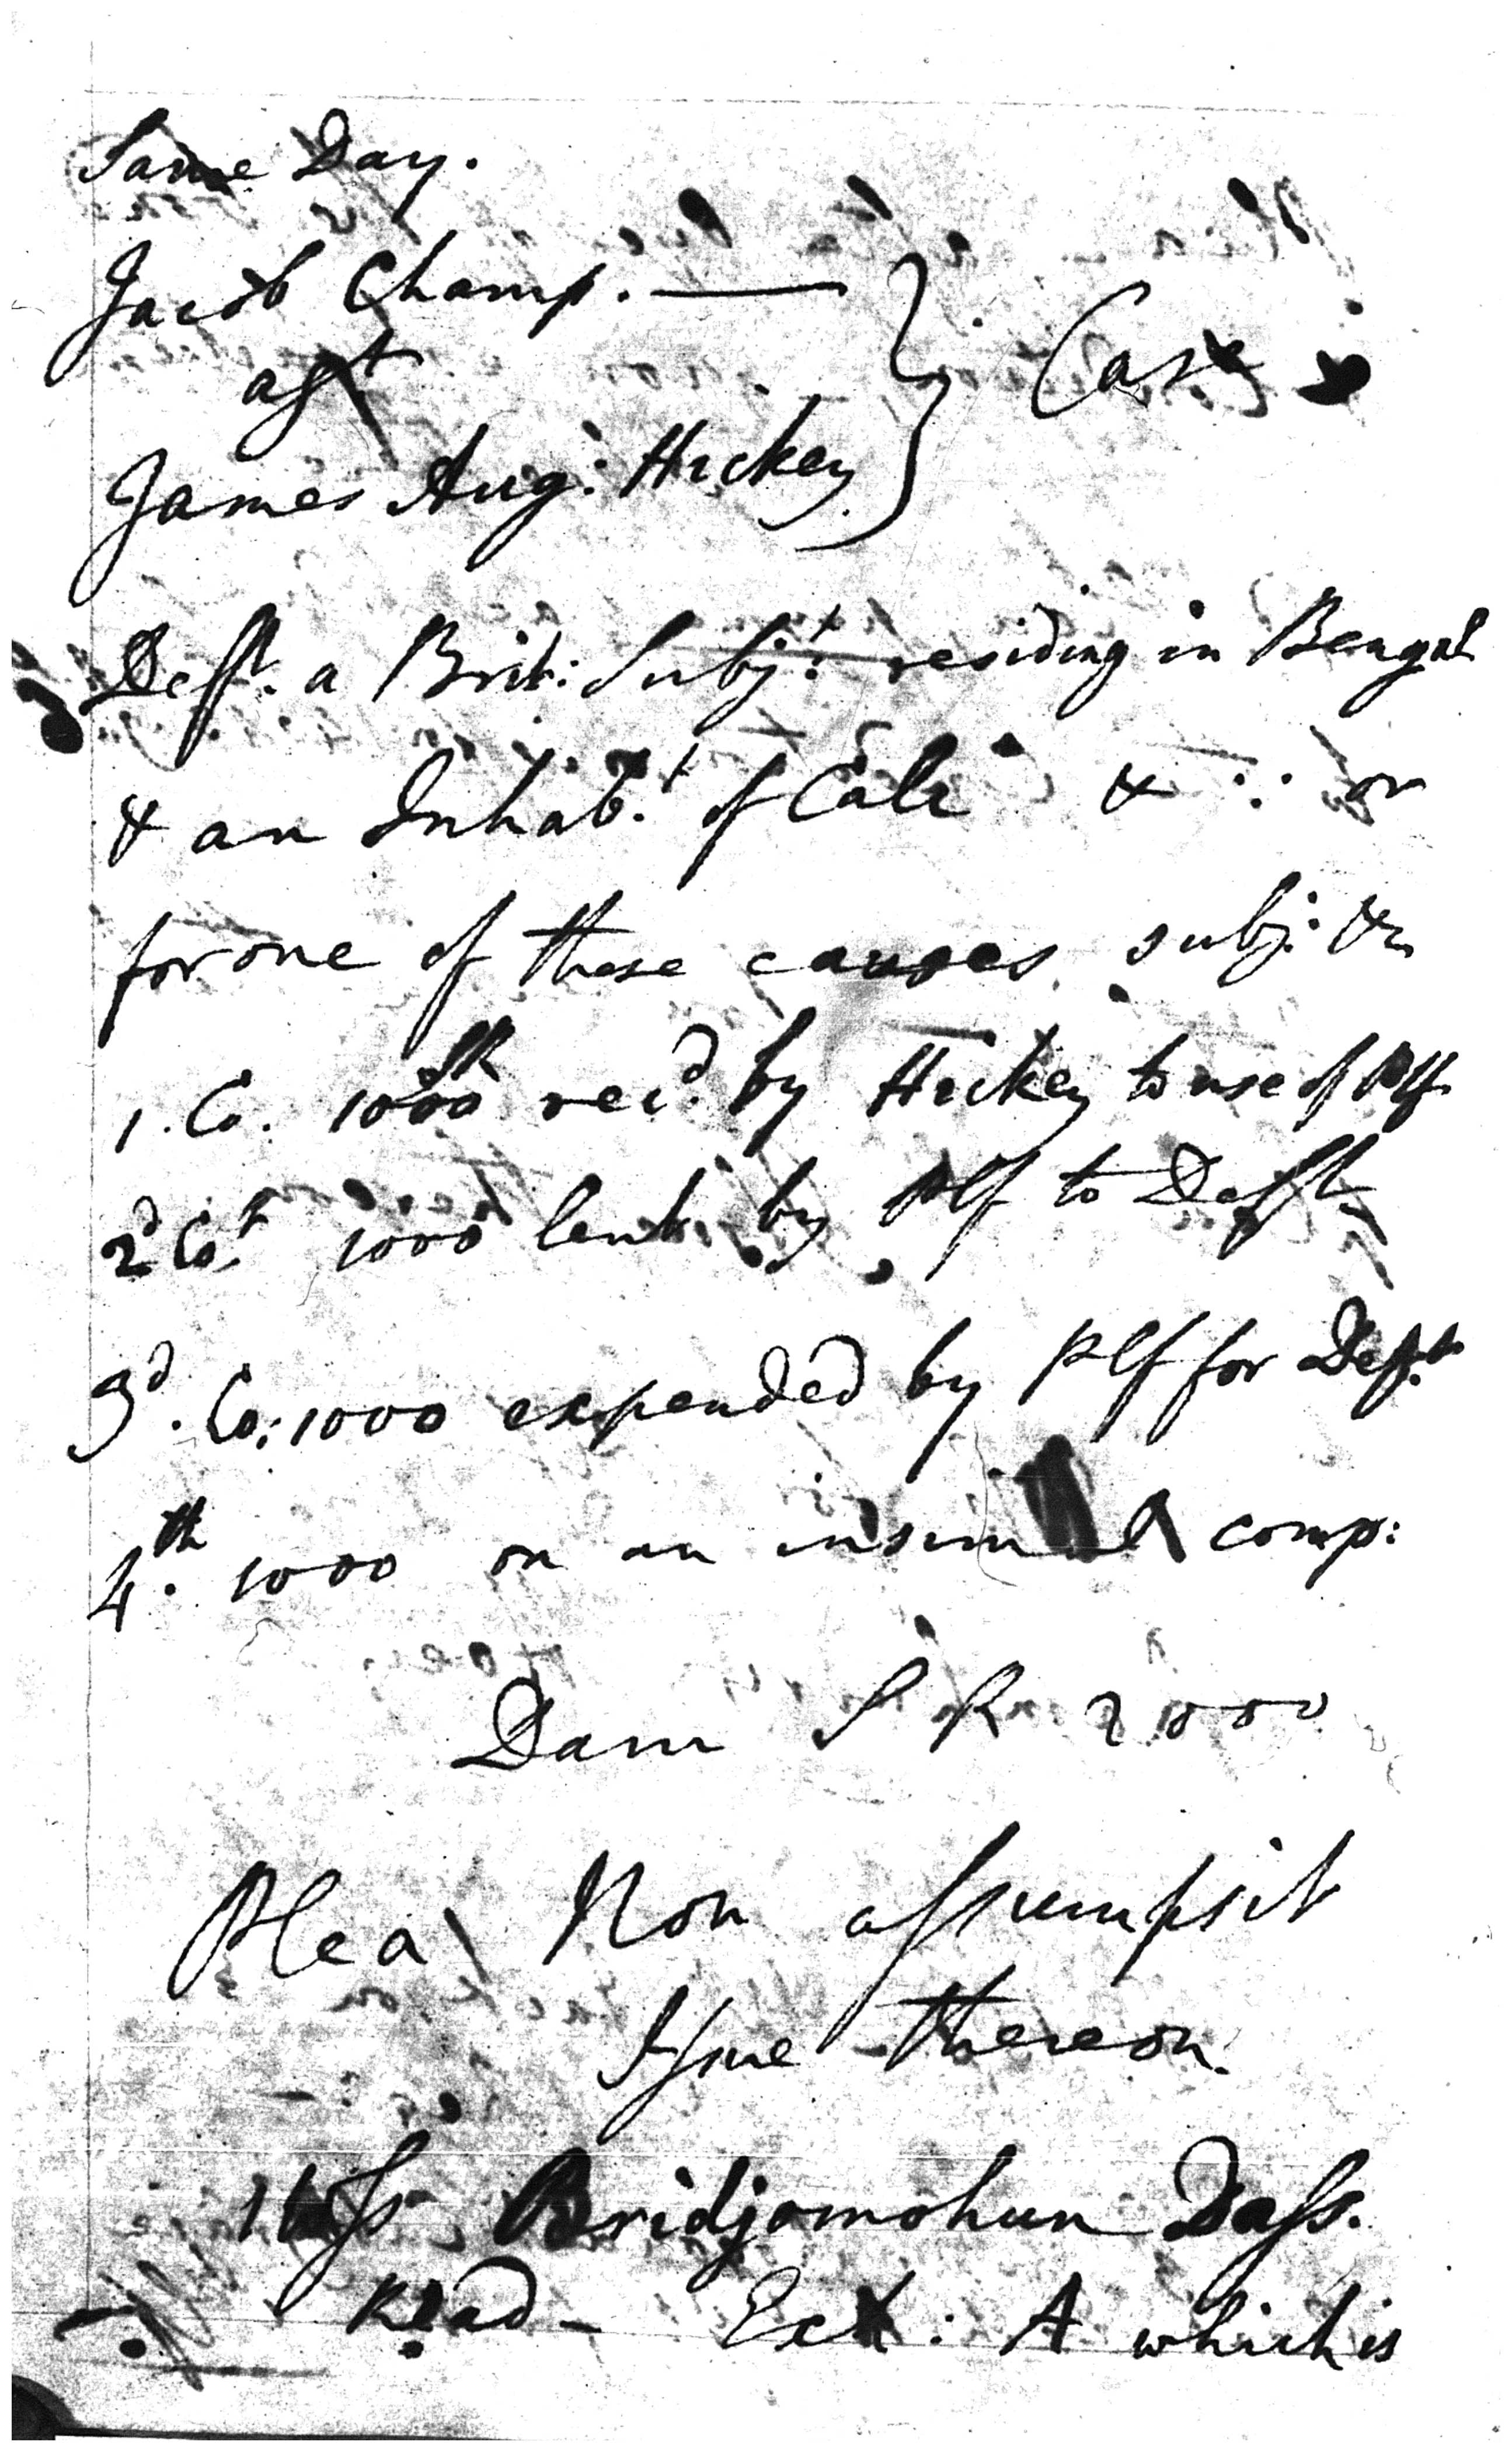 Same Day.
Jacob Champ. —
agt
James Aug: Hickey } Case
Deft. a Brit: Subjt. residing in Bengal
& an Inhabt. of Calc & : : or
for one of these causes subj: &c
1. Co. 1000 SR recd. by Hickey to use of Plf
2d Cot. 1000 lent by Plf to Deft
3d. Co: 1000 expended by Plf for Deft.
4th. 1000 on an insimul comp:
Dam S R 2000
Plea Non assumpsit
Issue thereon.
1 Wss Bridjomohun Dass.
Read - Ex: A which is